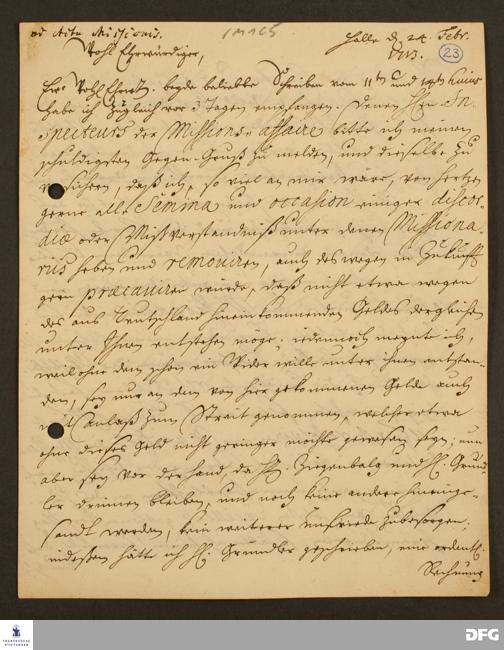 ad Acta Missionis.
1 M 1 C 5
Halle d. 24. Febr.
1713.
23
Wohl Ehrwürdiger,
Ew. Wohl Ehrw. beyde beliebte Schreiben vom 11ten und 14ten huius
habe ich zugleich vor 3 Tagen empfangen. Denen HEn. In-
specteurs der Missions-affaire bitte ich meinen
schuldigsten Gegen-Gruß zu melden, und dieselbe zu
versichern, daß ich, so viel an mir wäre, von Hertzen
gerne alle Semina und occasion einiger discor-
diae oder Mißverständniß unter denen Missiona-
riis heben und removiren, auch deswegen in Zukunfft
gern praecaviren wurde, daß nicht etwa wegen
des aus Teutschland hineinkommenden Geldes dergleichen
unter Ihnen entstehen möge: iedennoch meynte ich,
weil ohne dem schon ein Wider wille unter ihnen entstan-
den, sey nur an dem von hier gekommenen Gelde auch
mit Anlaß zum Streit genommen, welcher etwa
ohne dieses Geld nicht geringer möchte gewesen seyn; nun
aber sey vor der hand, da H. Ziegenbalg und H. Gründ-
ler drinnen bleiben, und noch keine andere hineinge-
sandt werden, kein weiterer Unfriede zubesorgen.
indeßen hätte ich H. Gründler geschrieben, eine ordentl.
Rechnung
FRANCKESCHE STIFTUNGEN
DFG